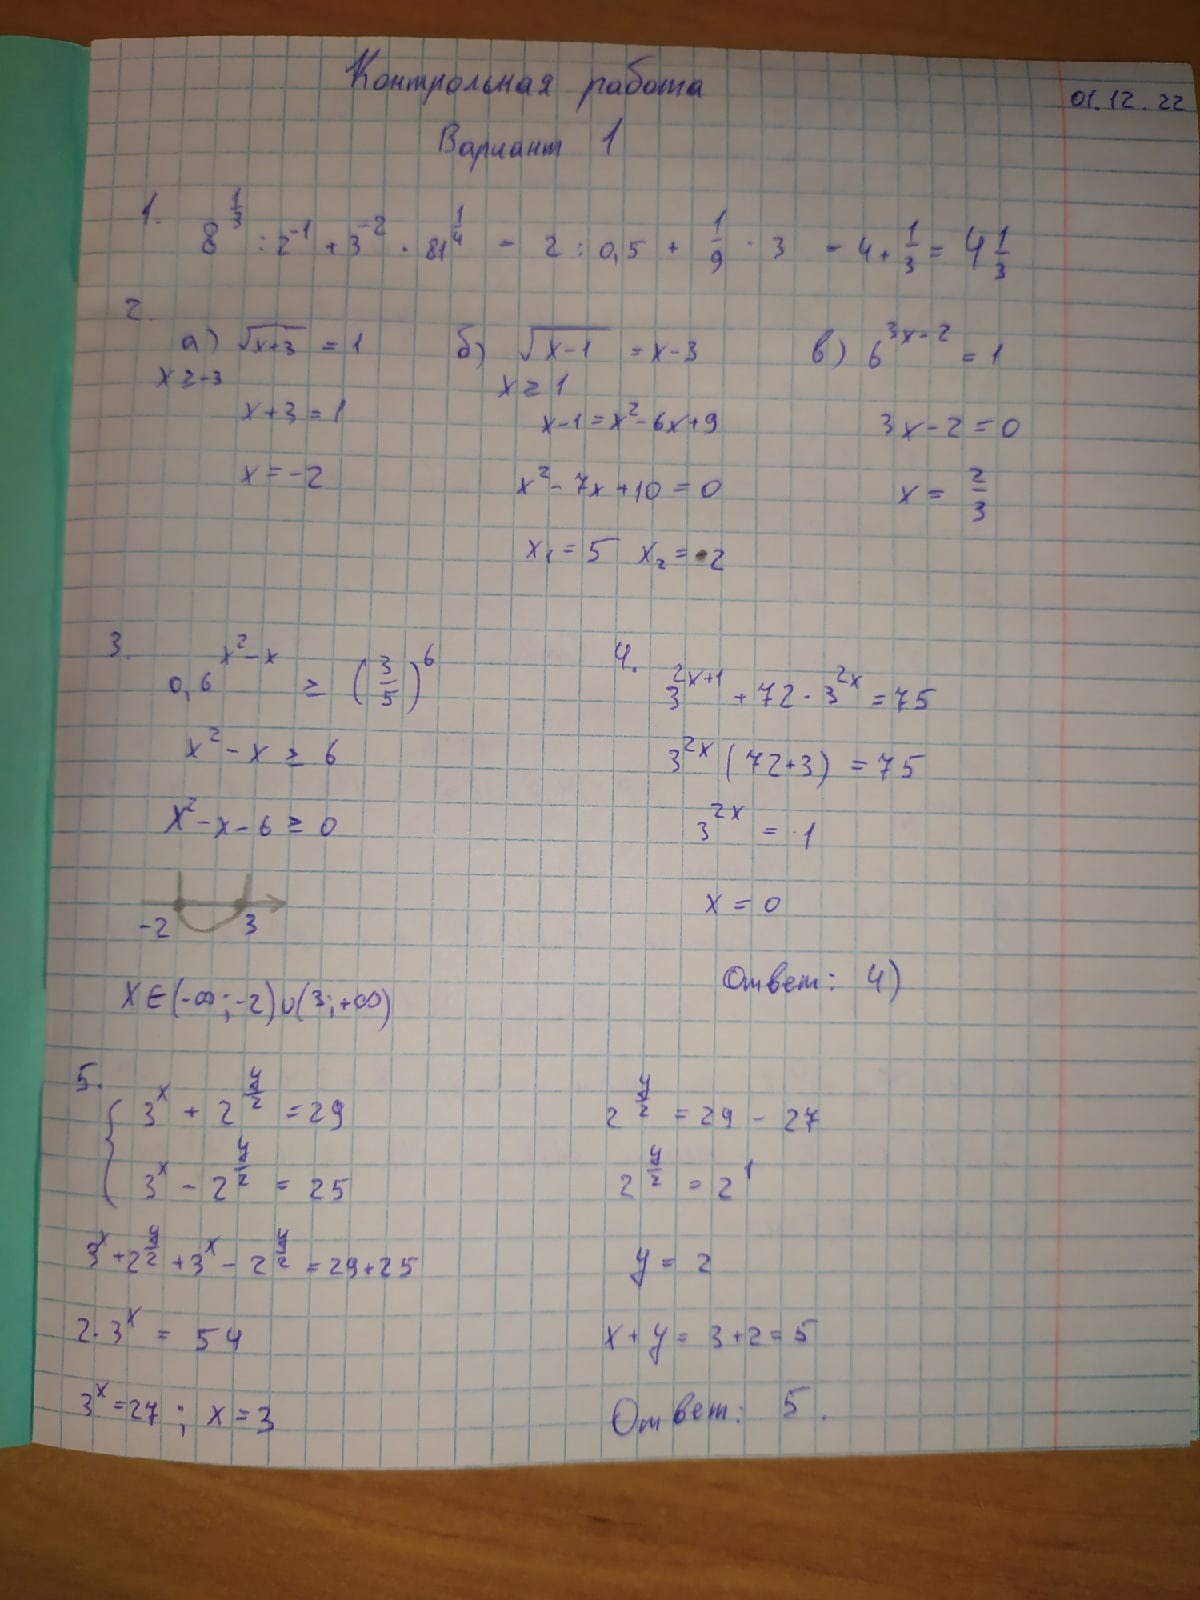 Контрольная работа
01.12.22
Вариант 1
1. 8^(1/3) : 2^(-1) + 3^(-2) · 81^(1/4) = 2 : 0,5 + 1/9 · 3 = 4 + 1/3 = 4 1/3
2.
а) √(x+3) = 1
x ≥ -3
x+3 = 1
x = -2
б) √(x-1) = x-3
x ≥ 1
x-1 = x² - 6x + 9
x² - 7x + 10 = 0
x₁ = 5 x₂ = 2
в) 6^(3x-2) = 1
3x - 2 = 0
x = 2/3
3.
0,6^(x²-x) ≥ (3/5)^6
x² - x ≥ 6
x² - x - 6 ≥ 0
-2 3
x ∈ (-∞; -2) ∪ (3; +∞)
4.
3^(2x+1) + 72 · 3^(2x) = 75
3^(2x) (72+3) = 75
3^(2x) = 1
x = 0
Ответ: 4)
5.
{ 3^x + 2^(y/2) = 29
3^x - 2^(y/2) = 25
3^x + 2^(y/2) + 3^x - 2^(y/2) = 29 + 25
2 · 3^x = 54
3^x = 27 ; x = 3
2^(y/2) = 29 - 27
2^(y/2) = 2^1
y = 2
x + y = 3 + 2 = 5
Ответ: 5.